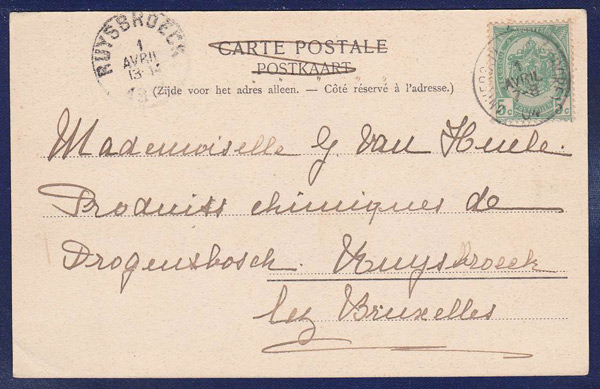 RUYSBROECK
1
AVRIL
13-14
CARTE POSTALE
POSTKAART
(Zijde voor het adres alleen. — Côté réservé à l'adresse.)
1
AVRIL
04
5c 5c
Mademoiselle G Van Huele.
Produits chimiques de
Drogenbosch. Ruysbroeck
lez Bruxelles